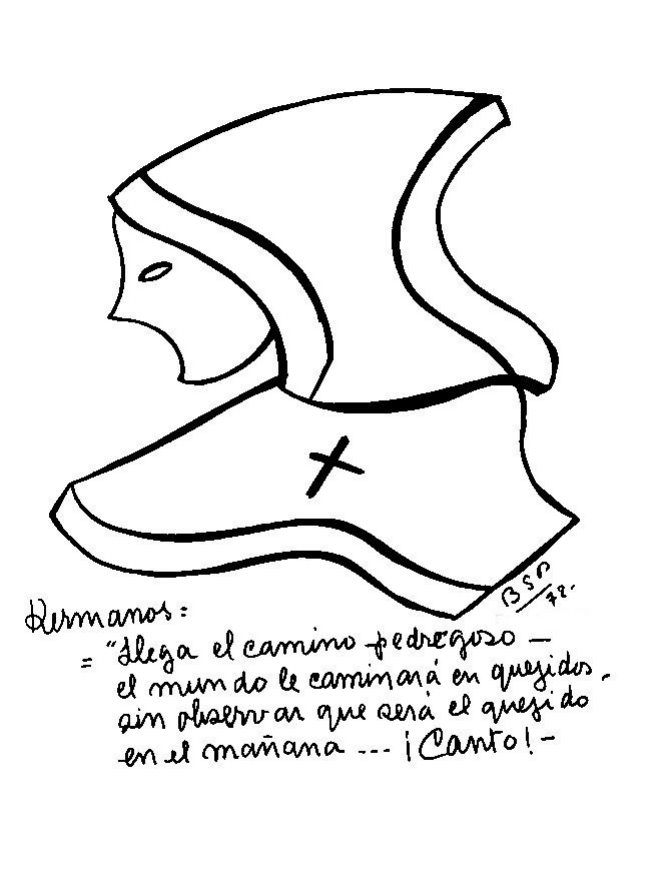 BSP
72.
Hermanos:
= "Llega el camino pedregoso —
el mundo le caminará en quejidos,
sin observar que será el quejido
en el mañana ... ¡Canto! -